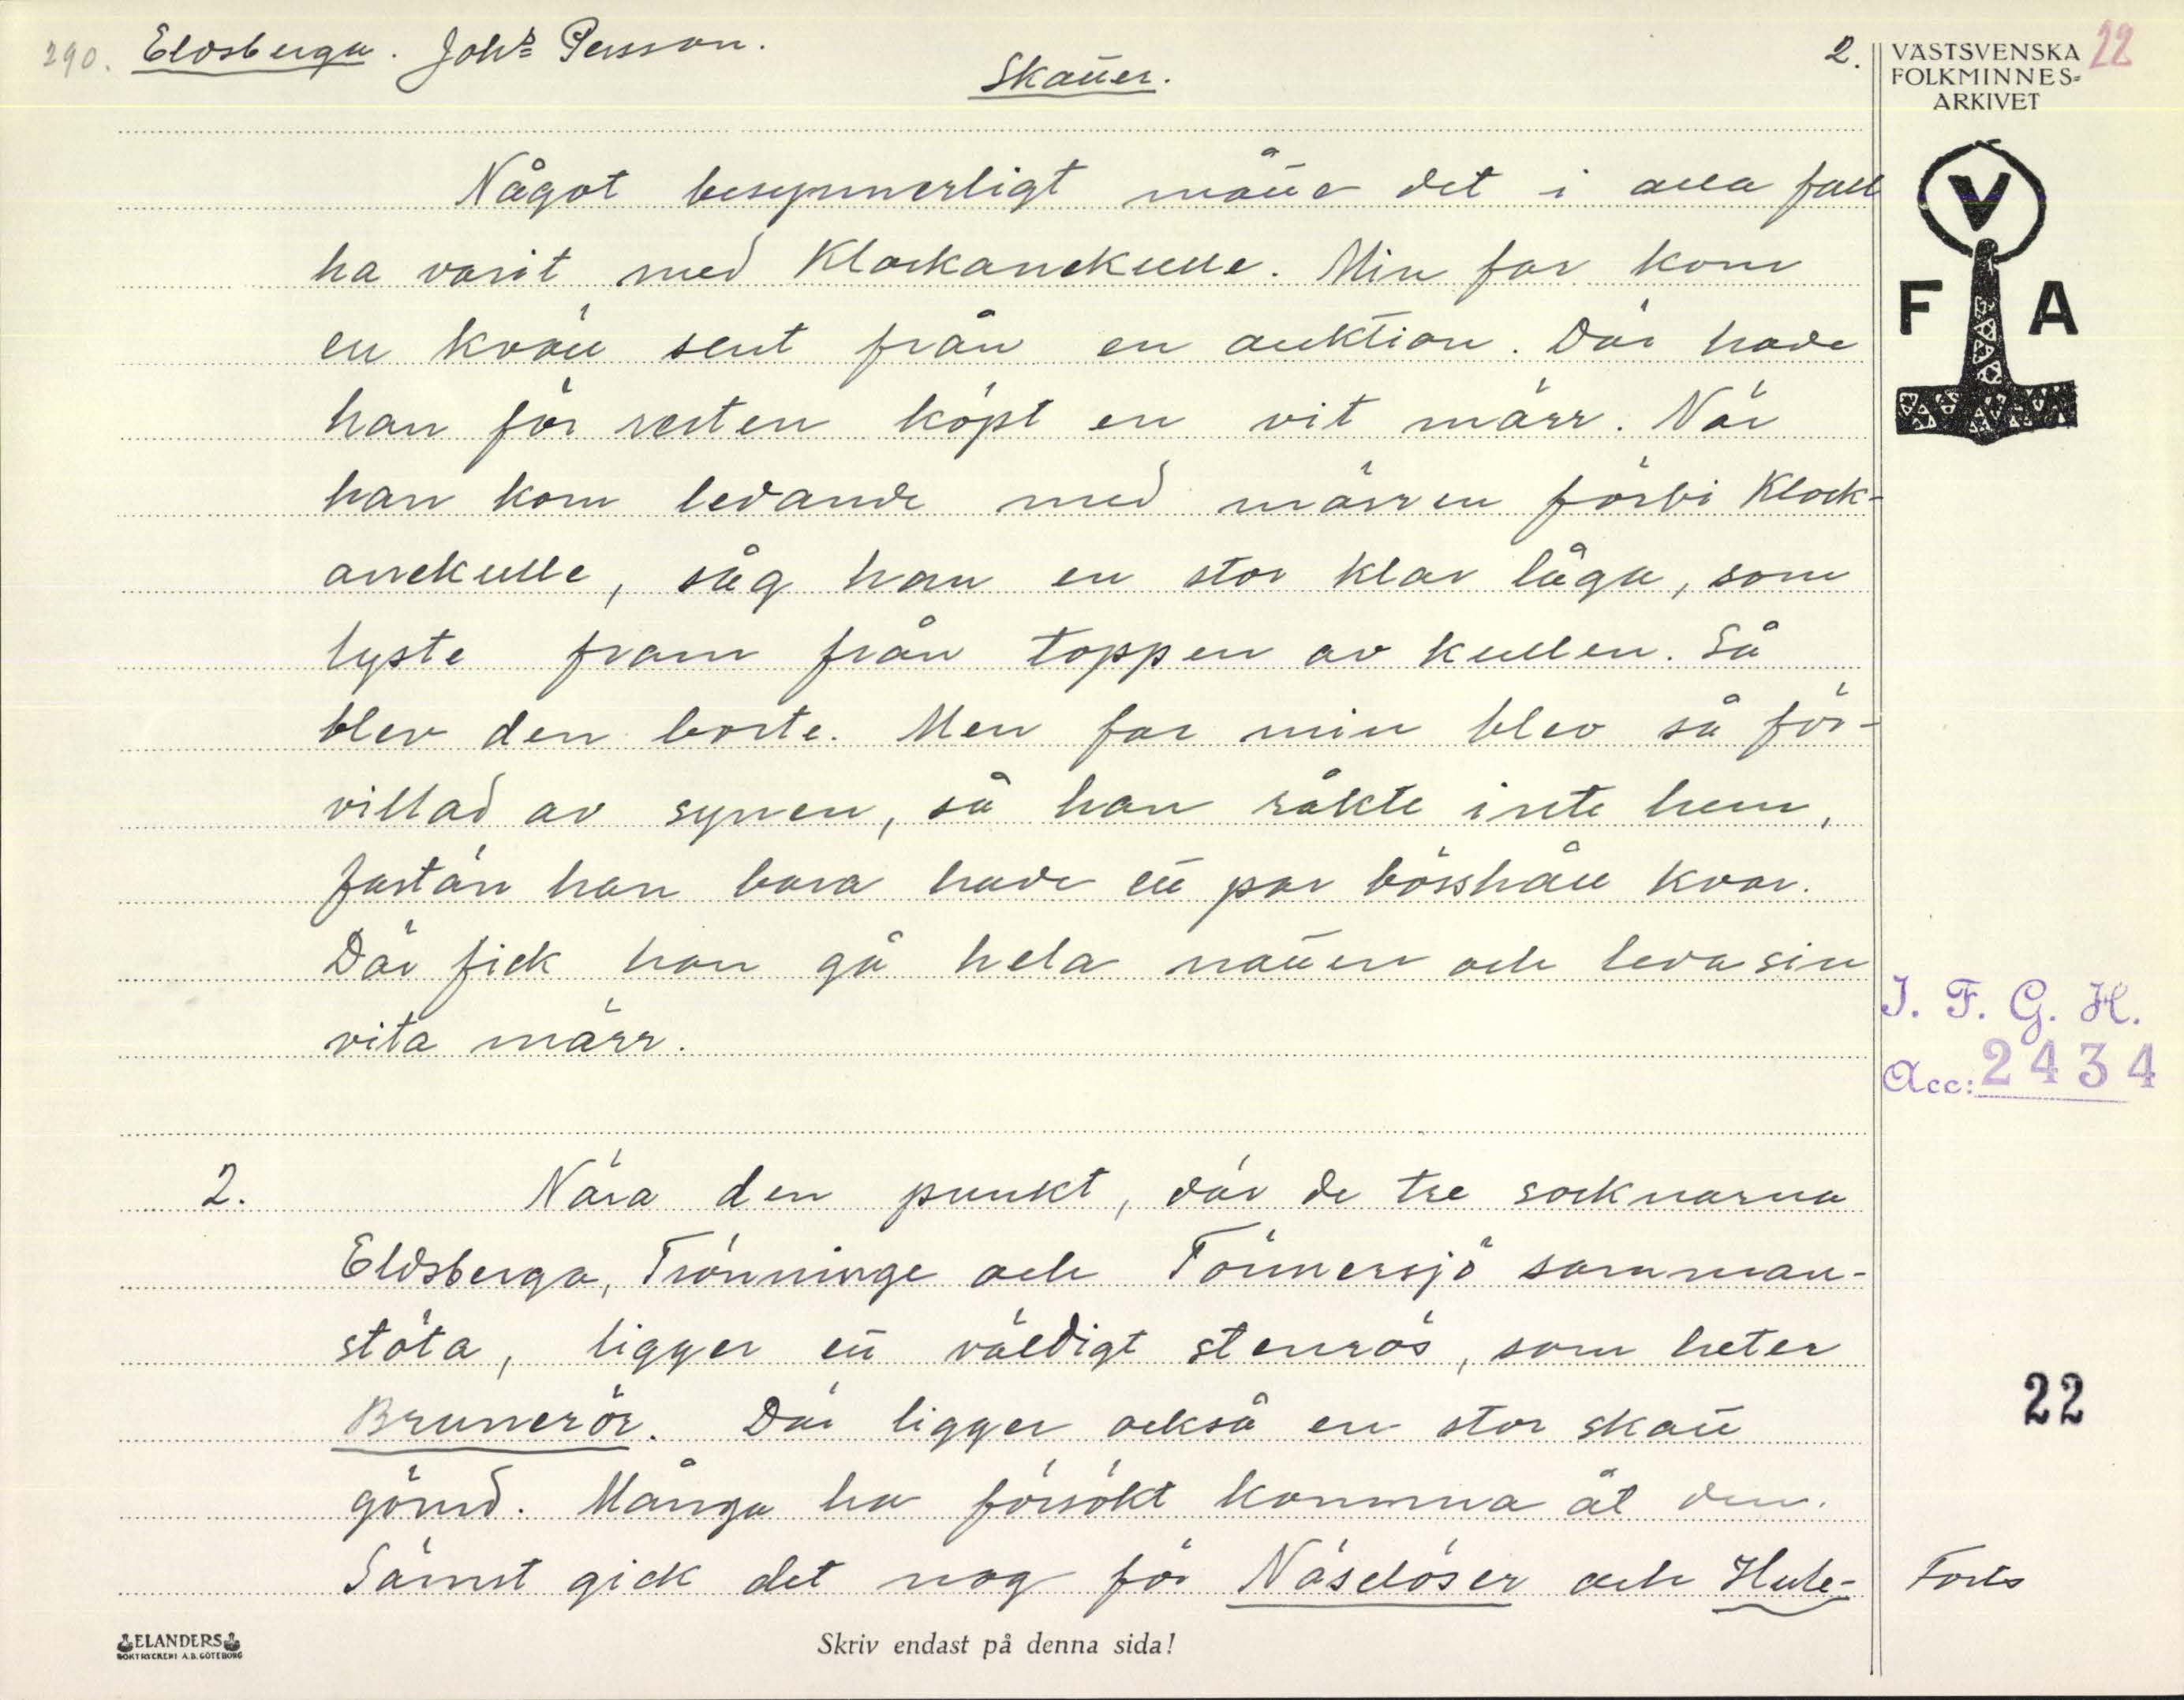 290. Eldsberga. Johs Persson. 2. 22
Skatter.
VÄSTSVENSKA
FOLKMINNES-
ARKIVET
V
F A
Något besynnerligt måtte det i alla fall
ha varit med Klockarekulle. Min far kom
en kväll sent från en auktion. Där hade
han för resten köpt en vit märr. När
han kom ledande med märren förbi Klock-
arekulle, såg han en stor klar låga, som
lyste fram från toppen av kullen. Så
blev den borte. Men far min blev så för-
villad av synen, så han råkte inte hem,
fastän han bara hade ett par bösshåll kvar.
Där fick han gå hela natten och leda sin
vita märr.
I. F. G. H.
Acc: 2434
2. Nära den punkt, där de tre socknarna
Eldsberga, Trönninge och Tönnersjö samman-
stöta, ligger ett väldigt stenrös, som heter
Brunerör. Där ligger också en stor skatt
gömd. Många ha försökt komma åt den.
Sämst gick det nog för Näselöser och Hule-
22
Forts
ELANDERS
BOKTRYCKERI A.B. GÖTEBORG
Skriv endast på denna sida!